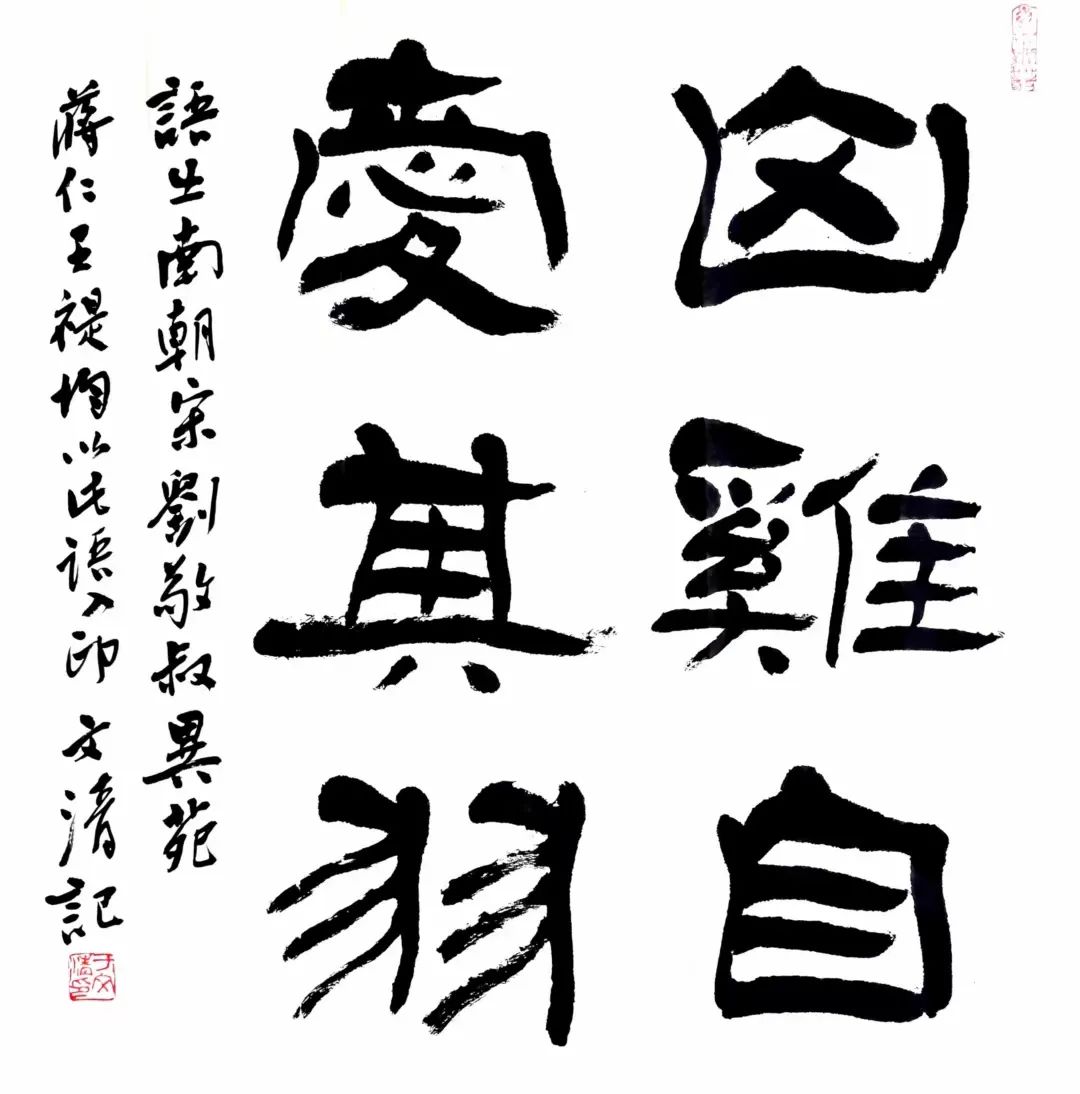 山雞自
愛其羽
語出南朝宋劉敬叔異苑
蔣仁王禔均以此語入印 文清記
于文清印